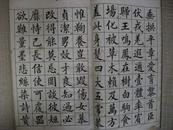 垂拱平章愛育黎首臣
伏戎羌遐邇壹體率賓
歸王鳴鳳在樹白駒食
場化被草木賴及萬方
蓋此身髮四大五常恭
惟鞠養豈敢毀傷女慕
貞潔男效才良知過必
改得能莫忘罔談彼短
靡恃己長信使可覆器
欲難量墨悲絲染詩讚